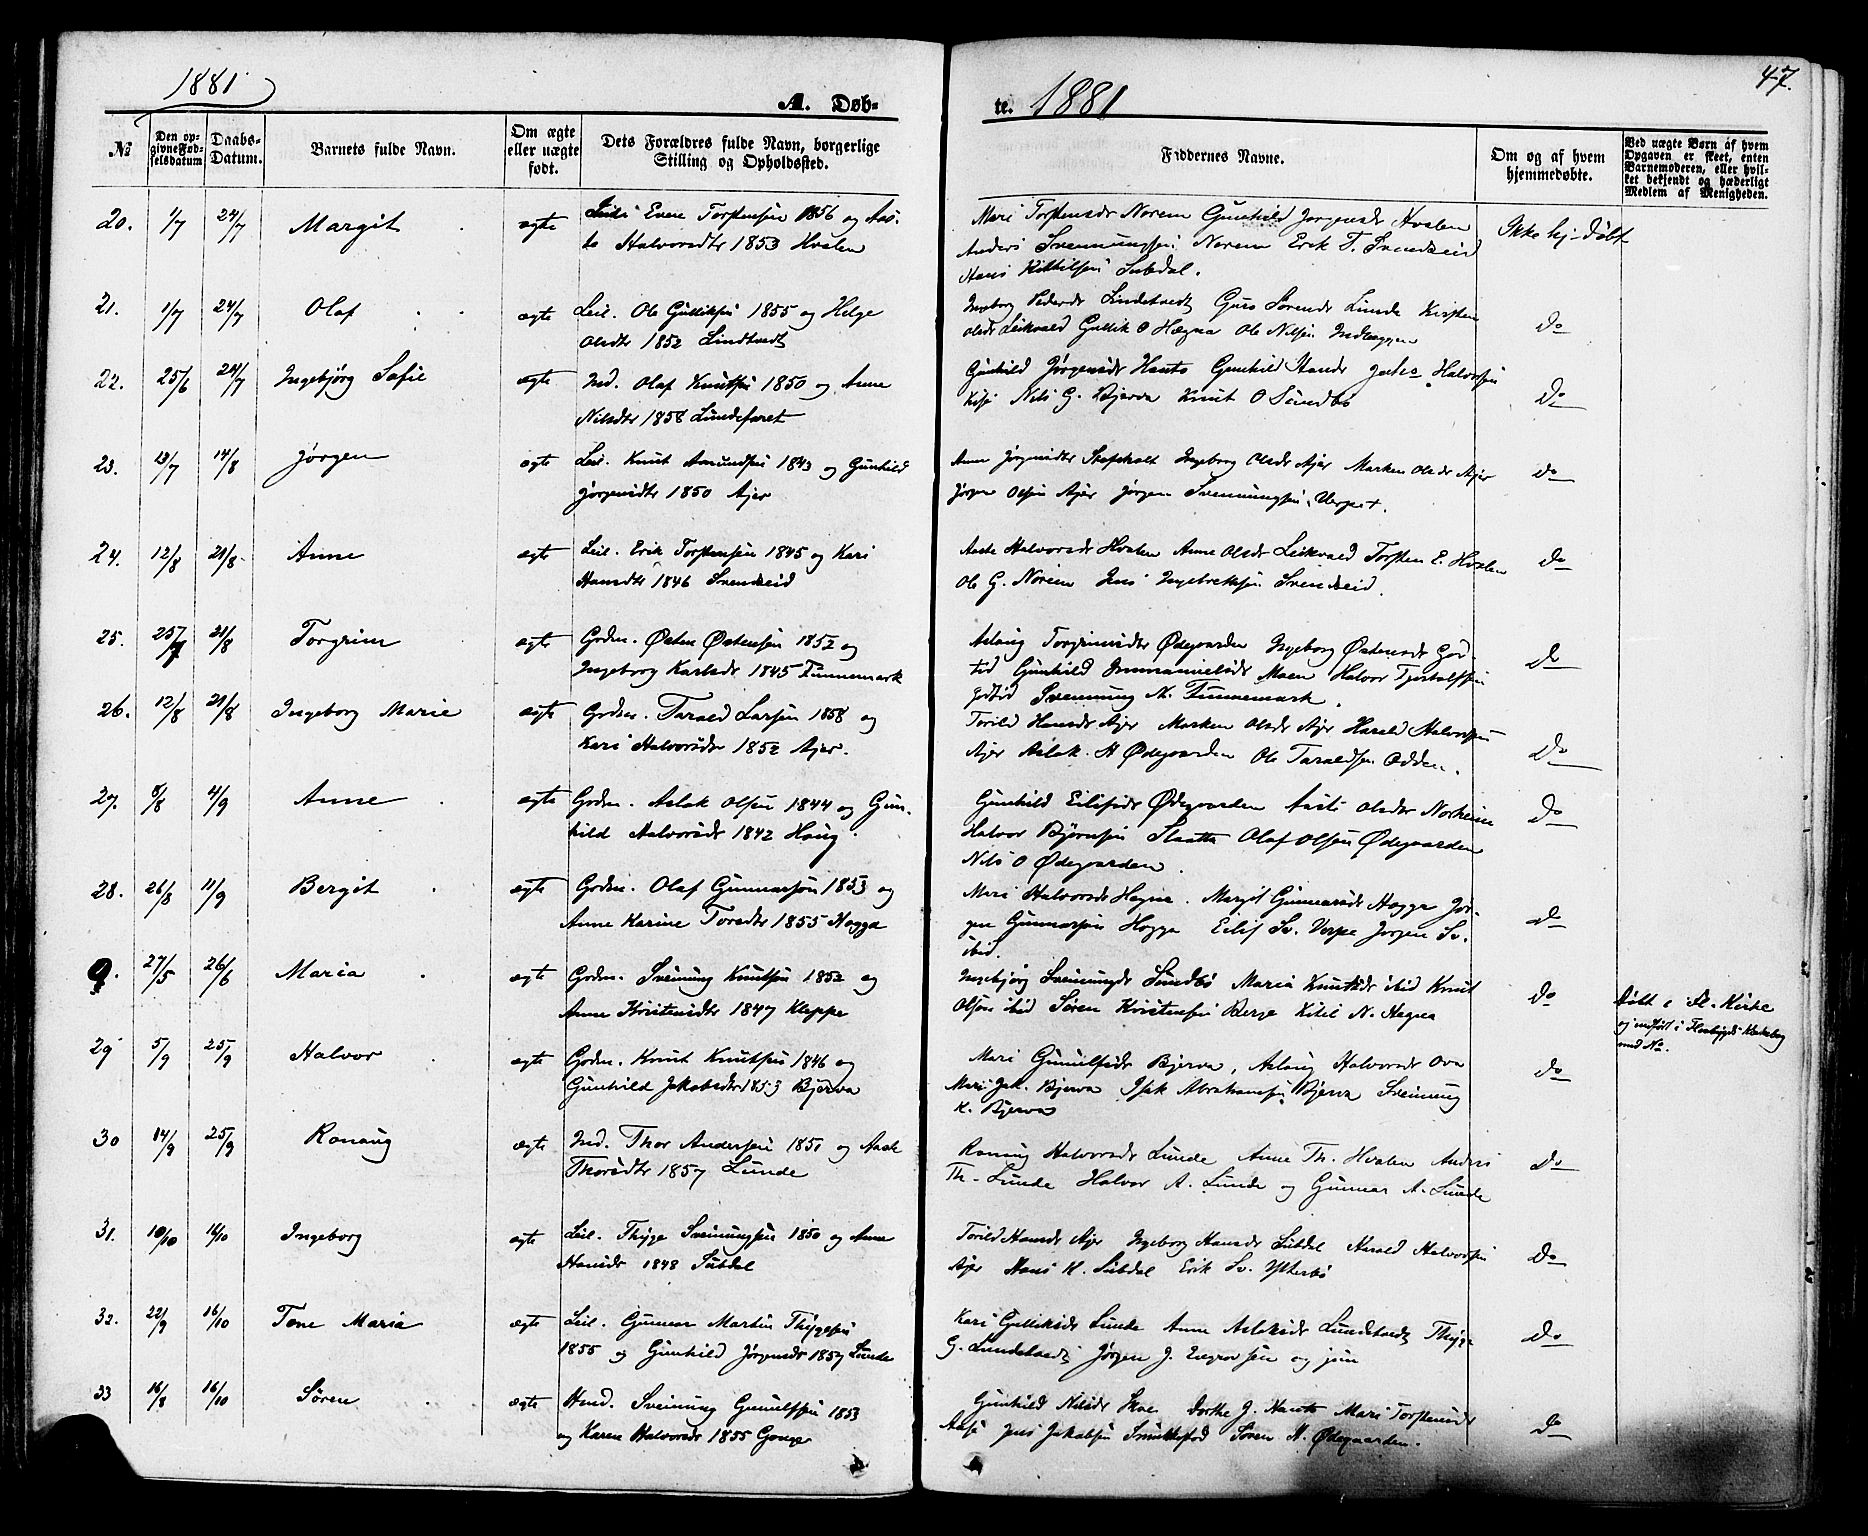 1881
A. Døb-
te. 1881
47.
№
Den op-
givne Fød-
selsdatum
Daabs-
Datum.
Barnets fulde Navn.
Om ægte
eller uægte
født.
Dets Forældres fulde Navn, borgerlige
Stilling og Opholdssted.
Faddernes Navne.
Om og af hvem
hjemmedøbte.
Ved uægte Børn af hvem
Opgaven er skeet, enten
Barnemoderen, eller hvil-
ket bekjendt og hæderligt
Medlem af Menigheden.
20. 1/7 24/7 Margit ægte Leil. Even Torstensen 1856 og Aas-
te Halvorsdtr 1853 Hvalen
Mari Torstensdr Norem Gunhild Jørgensdr Hvalen
Anders Svennungsen Norem Erik T. Svendseid
Hans Kittilsen Subdal.
Ikke hj-døbt
21. 1/7 24/7 Olaf ægte Leil. Ole Gulliksen 1855 og Helge
Olsdtr 1852 Lindtvedt
Ingeborg Pedersdr Lindetvedt Guro Sørensdr Lunde Kirsten
Olsdr Leikvald Gullik O Hægna Ole Nilsen
Do
22. 25/6 24/7 Ingebjørg Sofie ægte Ind. Olaf Knutsen 1850 og Anne
Nilsdtr 1858 Lundefaret
Gunhild Jørgensdr Hanto Gunhild Halvorsen
Nils G. Bjerva Knut O Sundbø
Do
23. 13/7 14/8 Jørgen ægte Leil. Knut Amundsen 1843 og Gunhild
Jørgensdtr 1850 Ajer
Anne Jørgensdtr Ingeborg Olsdr Ajer Marken Olsdr Ajer
Jørgen Olsen Ajer Jørgen Svennungsen
Do
24. 12/8 21/8 Anne ægte Leil. Erik Torstensen 1845 og Kari
Hansdtr 1846 Svendseid
Aaste Halvorsdr Hvalen Anne Olsdr Leikvald Torsten E. Hvalen
Ole G. Norem Jens Ingebretsen Svendseid.
Do
25. 25/7 21/8 Torgrim ægte Grdm. Østen Østensen 1852 og
Ingeborg Karlsdr 1845 Funnemark
Aslaug Torgrimsdtr Ødegaarden Ingeborg Østensdr God-
tid Gunhild Immanuelsdr Moen Halvor
Svennung N. Funnemark.
Do
26. 12/8 21/8 Ingeborg Marie ægte Grdm. Tarald Larsen 1858 og
Kari Halvorsdr 1852 Ajer.
Torild Hansdr Ajer Marken Olsdr Ajer Harald Halvorsen
Ajer Aslak H Ødegaarden Ole Taraldsen Odden.
Do
27. 8/8 4/9 Anne ægte Grdm. Aslak Olsen 1844 og Gun-
hild Halvorsdr 1842 Haug.
Gunhild Eilifsdr Ødegaarden Aaste Olsdtr Norheim
Halvor Bjørnsen Slaatta Olaf Olsen Ødegaarden
Nils O Ødegaarden.
Do
28. 26/8 11/9 Bergit ægte Grdm. Olaf Gunnarsen 1853 og
Anne Karine Toresdtr 1855 Hogga
Mari Halvorsdr Hægna. Margit Gunnarsdr Hogga Jør-
gen Gunnarsen Hogga Eilif Sv. Verpe Jørgen Sv.
ibid.
Do
9. 27/5 26/6 Maria ægte Grdm. Svenung Knutsen 1852 og
Anne Kristensdtr 1847 Kleppe
Ingebjørg Svennungsdr Sundbø Maria Knutsdr ibid Knut
Olsen ibid Søren Kristensen Berge Kitil N. Hægna
Do
Døbt i Fl. Kirke
og indført i Flaabygds Kirkebog
med No.
29 5/9 25/9 Halvor ægte Grdm. Knut Knutsen 1846 og
Gunhild Jakobsdtr 1853 Bjerva
Mari Gunulfsdr Bjerva, Aslaug Halvorsdr Ova
Mari Jak. Bjerva Isak Abrahamsen Bjerva Svenung
K. Bjerva
Do
30 14/9 25/9 Ronaug ægte Ind. Thor Andersen 1851 og Aase
Thorsdtr 1857 Lunde
Ronaug Halvorsdr Lunde Anne Th. Hvalen Anders
Th. Lunde Halvor A. Lunde og Gunnar A. Lunde
Do
31. 10/10 16/10 Ingeborg ægte Leil. Thyge Svenungsen 1850 og Anne
Hansdr 1848 Subdal
Torild Hansdr Ajer Ingeborg Hansdr Subdal Harald Halvorsen
Ajer Hans K. Subdal Erik Sv. Ytterbø
Do
32. 22/9 16/10 Tone Maria ægte Leil. Gunnar Martin Thygesen
1855 og Gunhild Jørgensdr 1857 Lunde
Kari Gulliksdr Lunde Anne Aslaksdr Lundetvedt Thyge
G. Lundetvedt Jørgen J. og
Do
33 16/8 16/10 Søren ægte Hmd. Svenung Gunulfsen 1853
og Karen Halvorsdr 1855
Gunhild Nilsdr Dorthe J. Hanto Mari Torstensdr
Aase Jens Jakobsen Søren H. Ødegaarden.
Do